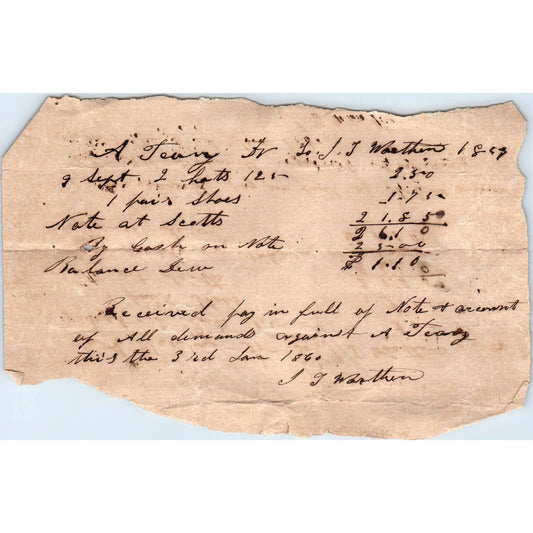 A Teary Dr To J T Warthen 1859
9 Sept 2 hats 125 2.50
1 pair Shoes 1.75
Note at Scotts 21.85
26.10
By Cash on Note 25.00
Balance Due $1.10
Received pay in full of Note & account
of All demands against A Teary
this the 3rd Jan 1860
J T Warthen